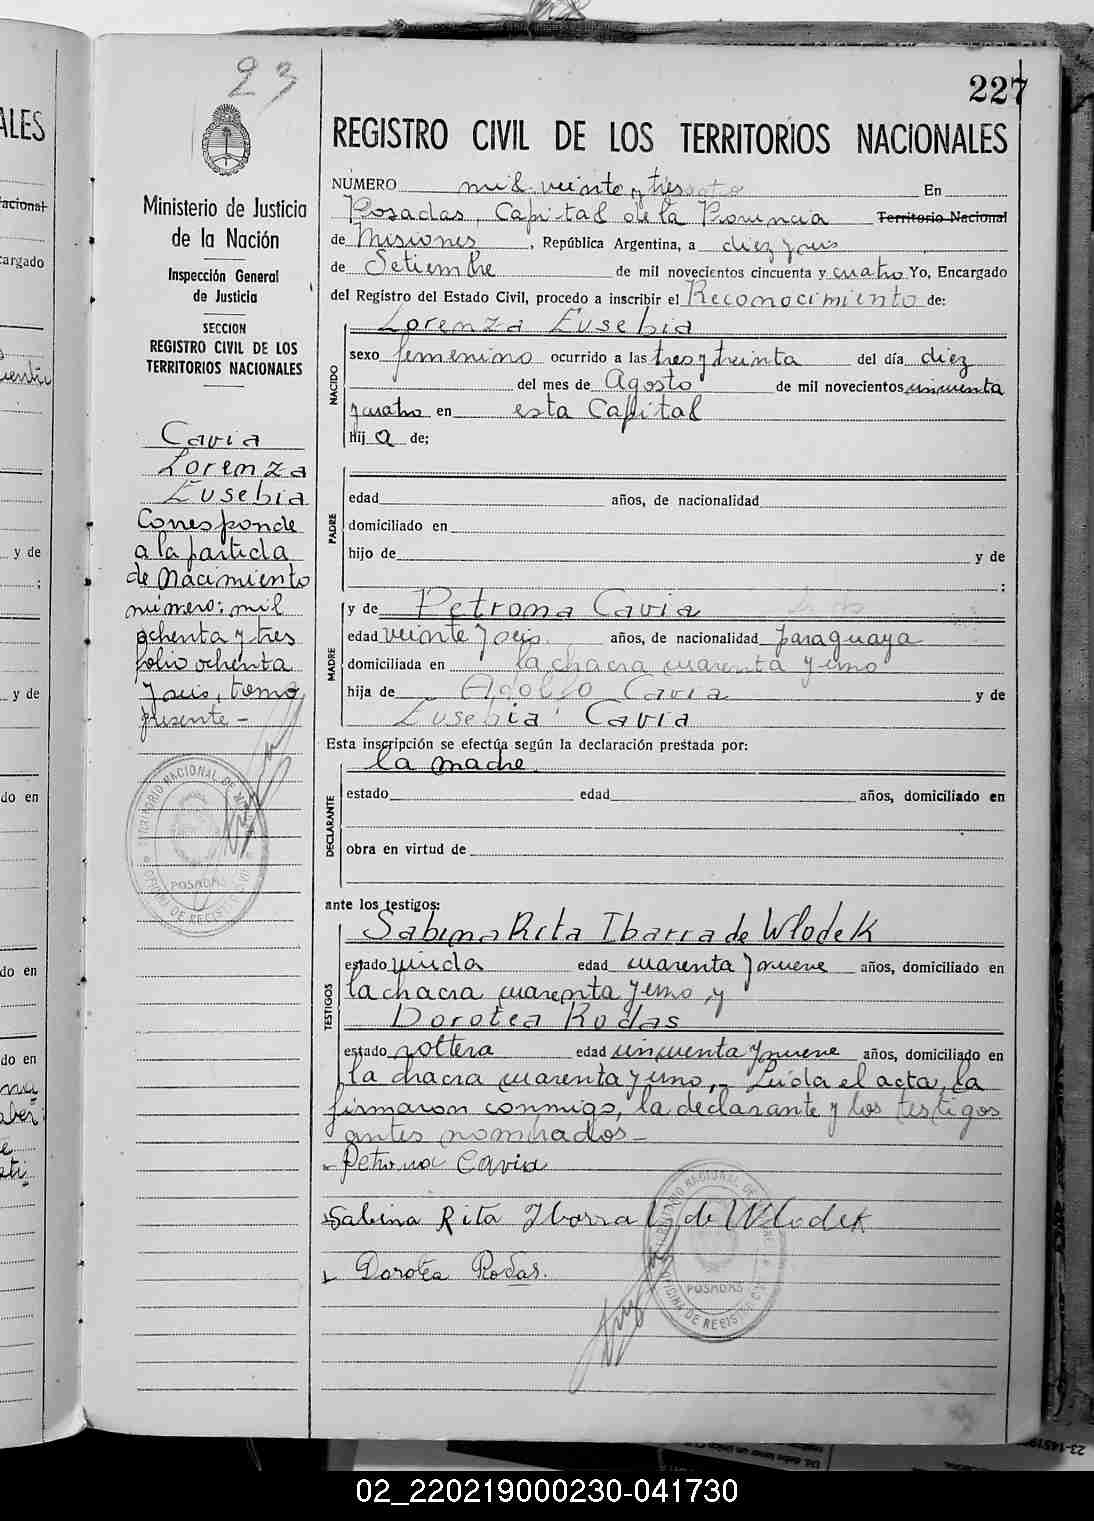 23
227
REGISTRO CIVIL DE LOS TERRITORIOS NACIONALES
Ministerio de Justicia
de la Nación
Inspección General
de Justicia
SECCION
REGISTRO CIVIL DE LOS
TERRITORIOS NACIONALES
Cavia
Lorenza
Eusebia
Corresponde
a la partida
de Nacimiento
número: mil
ochenta y tres
folio ochenta
y seis, tomo
presente -
NÚMERO mil veinte y tres En
Posadas, Capital de la Provincia Territorio Nacional
de Misiones, República Argentina, a diez y seis
de Setiembre de mil novecientos cincuenta y cuatro Yo, Encargado
del Registro del Estado Civil, procedo a inscribir el Reconocimiento de:
Lorenza Eusebia
NACIDO
sexo femenino ocurrido a las tres y treinta del día diez
del mes de Agosto de mil novecientos cincuenta
y cuatro en esta Capital
Hij a de:
PADRE
edad años, de nacionalidad
domiciliado en
hijo de y de
;
MADRE
y de Petrona Cavia
edad veinte y seis años, de nacionalidad paraguaya
domiciliada en la chacra cuarenta y uno
hija de Adolfo Cavia y de
Eusebia Cavia
Esta inscripción se efectúa según la declaración prestada por:
la madre
DECLARANTE
estado edad años, domiciliado en
obra en virtud de
ante los testigos:
TESTIGOS
Sabina Rita Ibarra de Wlodek
estado viuda edad cuarenta y nueve años, domiciliado en
la chacra cuarenta y uno, y
Dorotea Rodas
estado soltera edad cincuenta y nueve años, domiciliado en
la chacra cuarenta y uno, - Leída el acta, la
firmaron conmigo, la declarante y los testigos
antes nombrados -
Petrona Cavia
Sabina Rita Ibarra de Wlodek
Dorotea Rodas.
POSADAS
OFICINA DE REGISTRO CIVIL
POSADAS
OFICINA DE REGISTRO CIVIL
ALES
acional
cargado
y de
;
y de
do en
do en
do en
02_220219000230-041730